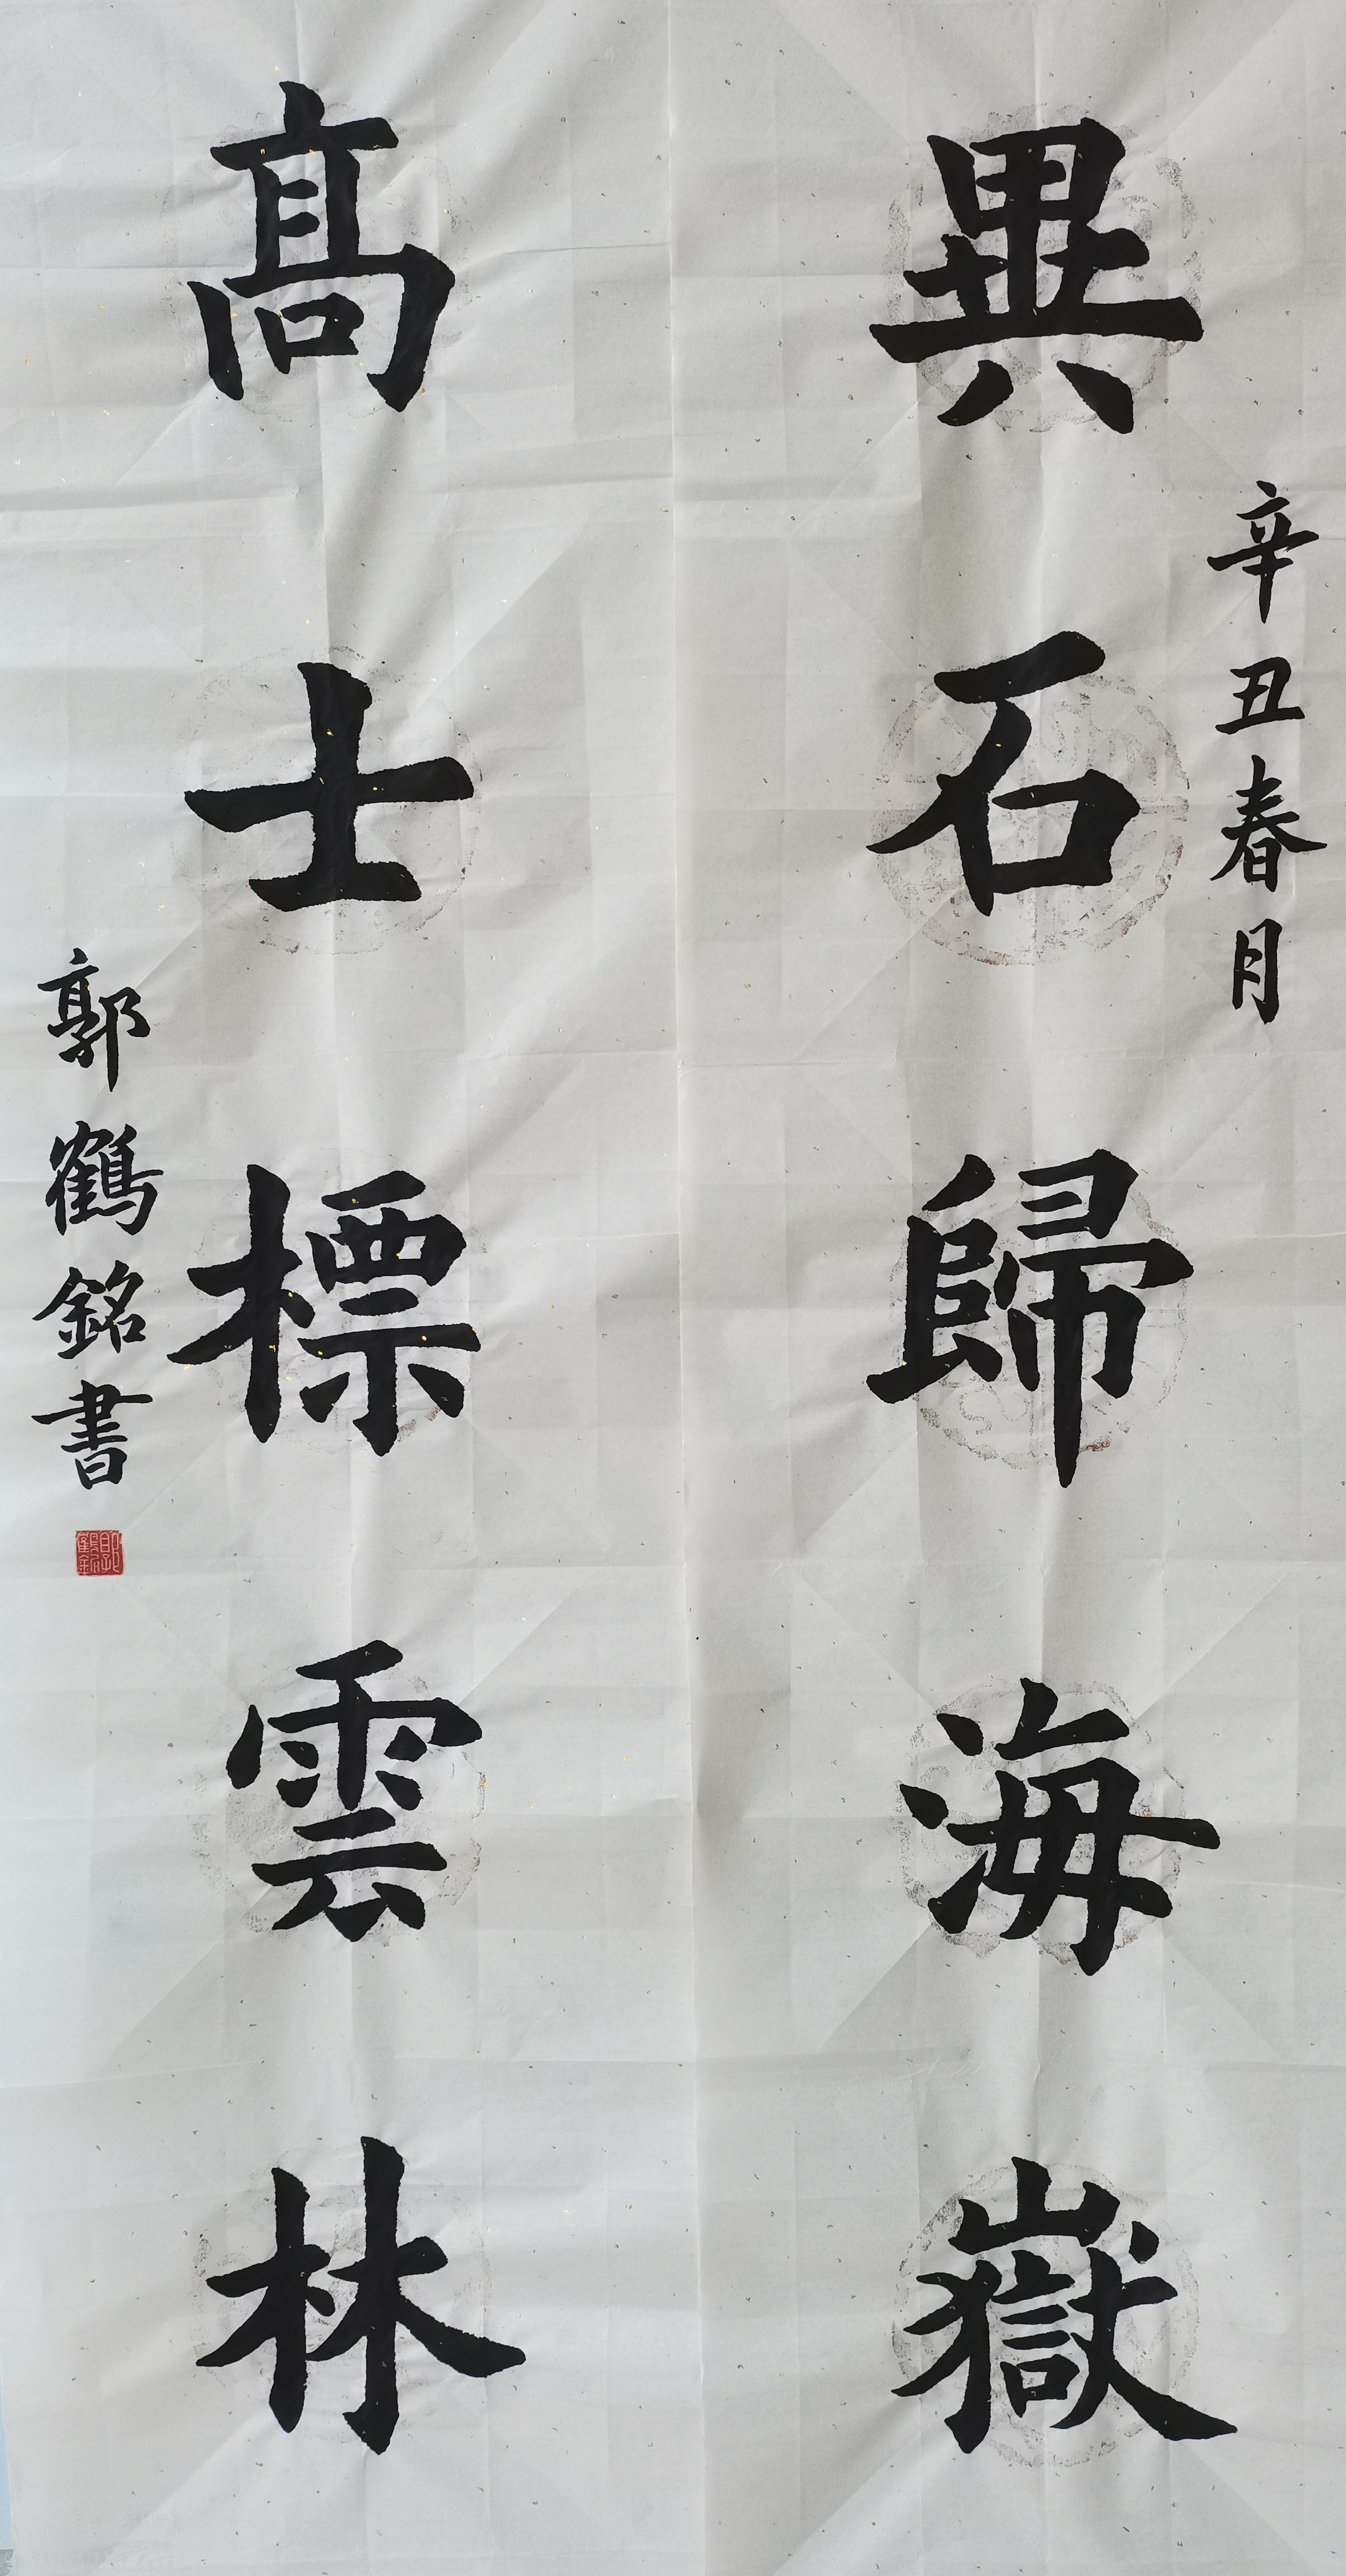 異石歸海嶽
辛丑春月
高士標雲林
郭鶴銘書